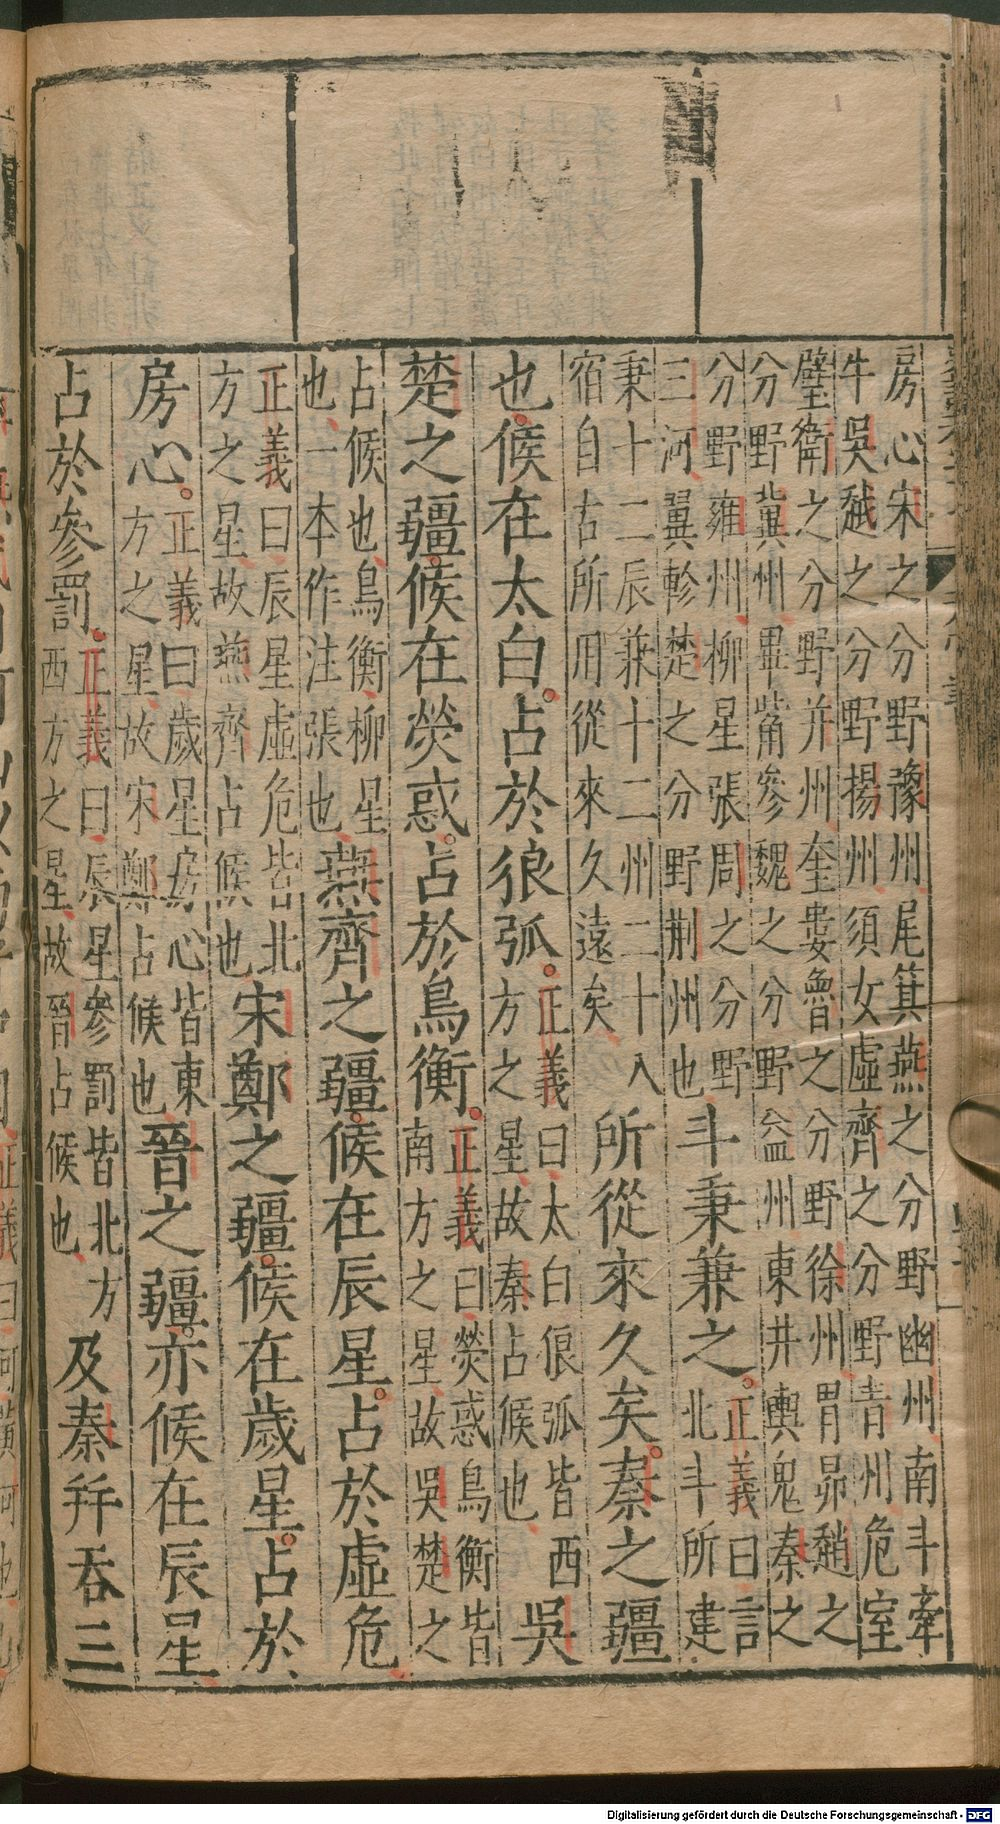 房心宋之分野豫州尾箕燕之分野幽州南斗牽
牛吳越之分野揚州須女虛齊之分野青州危室
璧衛之分野并州奎婁魯之分野徐州胃昴趙之
分野冀州畢觜參魏之分野益州東井輿鬼秦之
分野雍州柳星張周之分野
三河翼軫楚之分野荆州也
斗秉兼之。
正義曰言
北斗所建
秉十二辰兼十二州二十八
宿自古所用從來久遠矣
所從來久矣。秦之疆
也。候在太白。占於狼弧。
正義曰太白狼弧皆西
方之星故秦占候也
吳
楚之疆。候在熒惑。占於鳥衡。
正義曰熒惑鳥衡皆
南方之星故吳楚之
占候也鳥衡柳星
也一本作注張也
燕齊之疆。候在辰星。占於虛危
正義曰辰星虛危皆北
方之星故燕齊占候也
宋鄭之疆。候在歲星。占於
房心。
正義曰歲星房心皆東
方之星故宋鄭占候也
晉之疆。亦候在辰星
占於參罰。
正義曰辰星參罰皆北方
西方之星故晉占候也
及秦并吞三
Digitalisierung gefördert durch die Deutsche Forschungsgemeinschaft - DFG